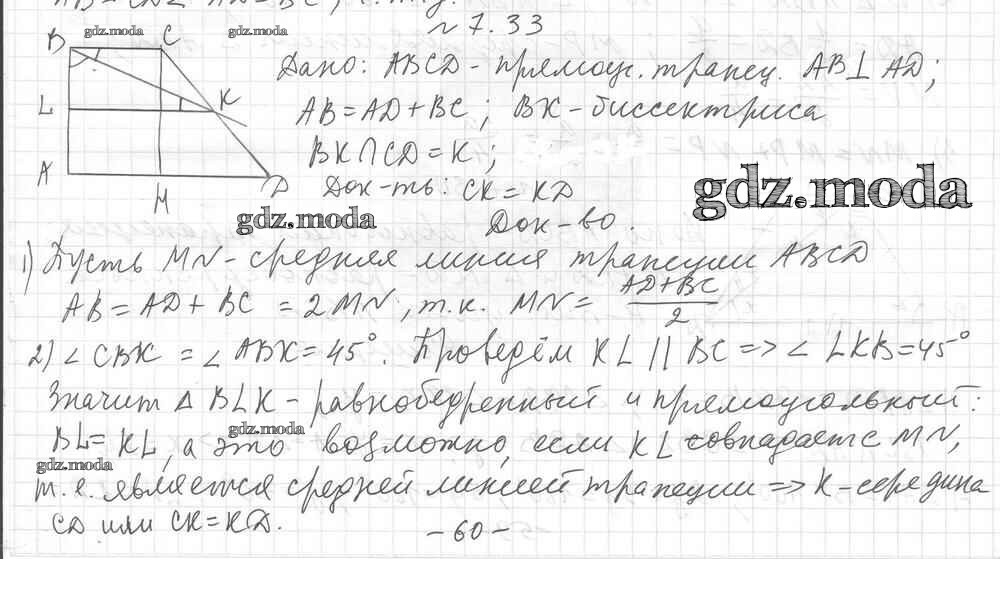 № 7.33
gdz.moda gdz.moda
B C
Дано: ABCD - прямоуг. трапец. AB⊥AD;
L K
AB = AD + BC; BK - биссектриса
BK∩CD = K;
A M D
Док-ть: CK = KD
gdz.moda
gdz.moda
Док-во.
1) Пусть MN - средняя линия трапеции ABCD
AB = AD + BC = 2MN, т.к. MN = (AD+BC)/2
2) ∠CBK = ∠ABK = 45°. Проведём KL || BC => ∠LKB = 45°
Значит △BLK - равнобедренный и прямоугольный:
gdz.moda
BL = KL, а это возможно, если KL совпадает с MN,
gdz.moda
т.е. является средней линией трапеции => K - середина
CD или CK = KD.
- 60 -